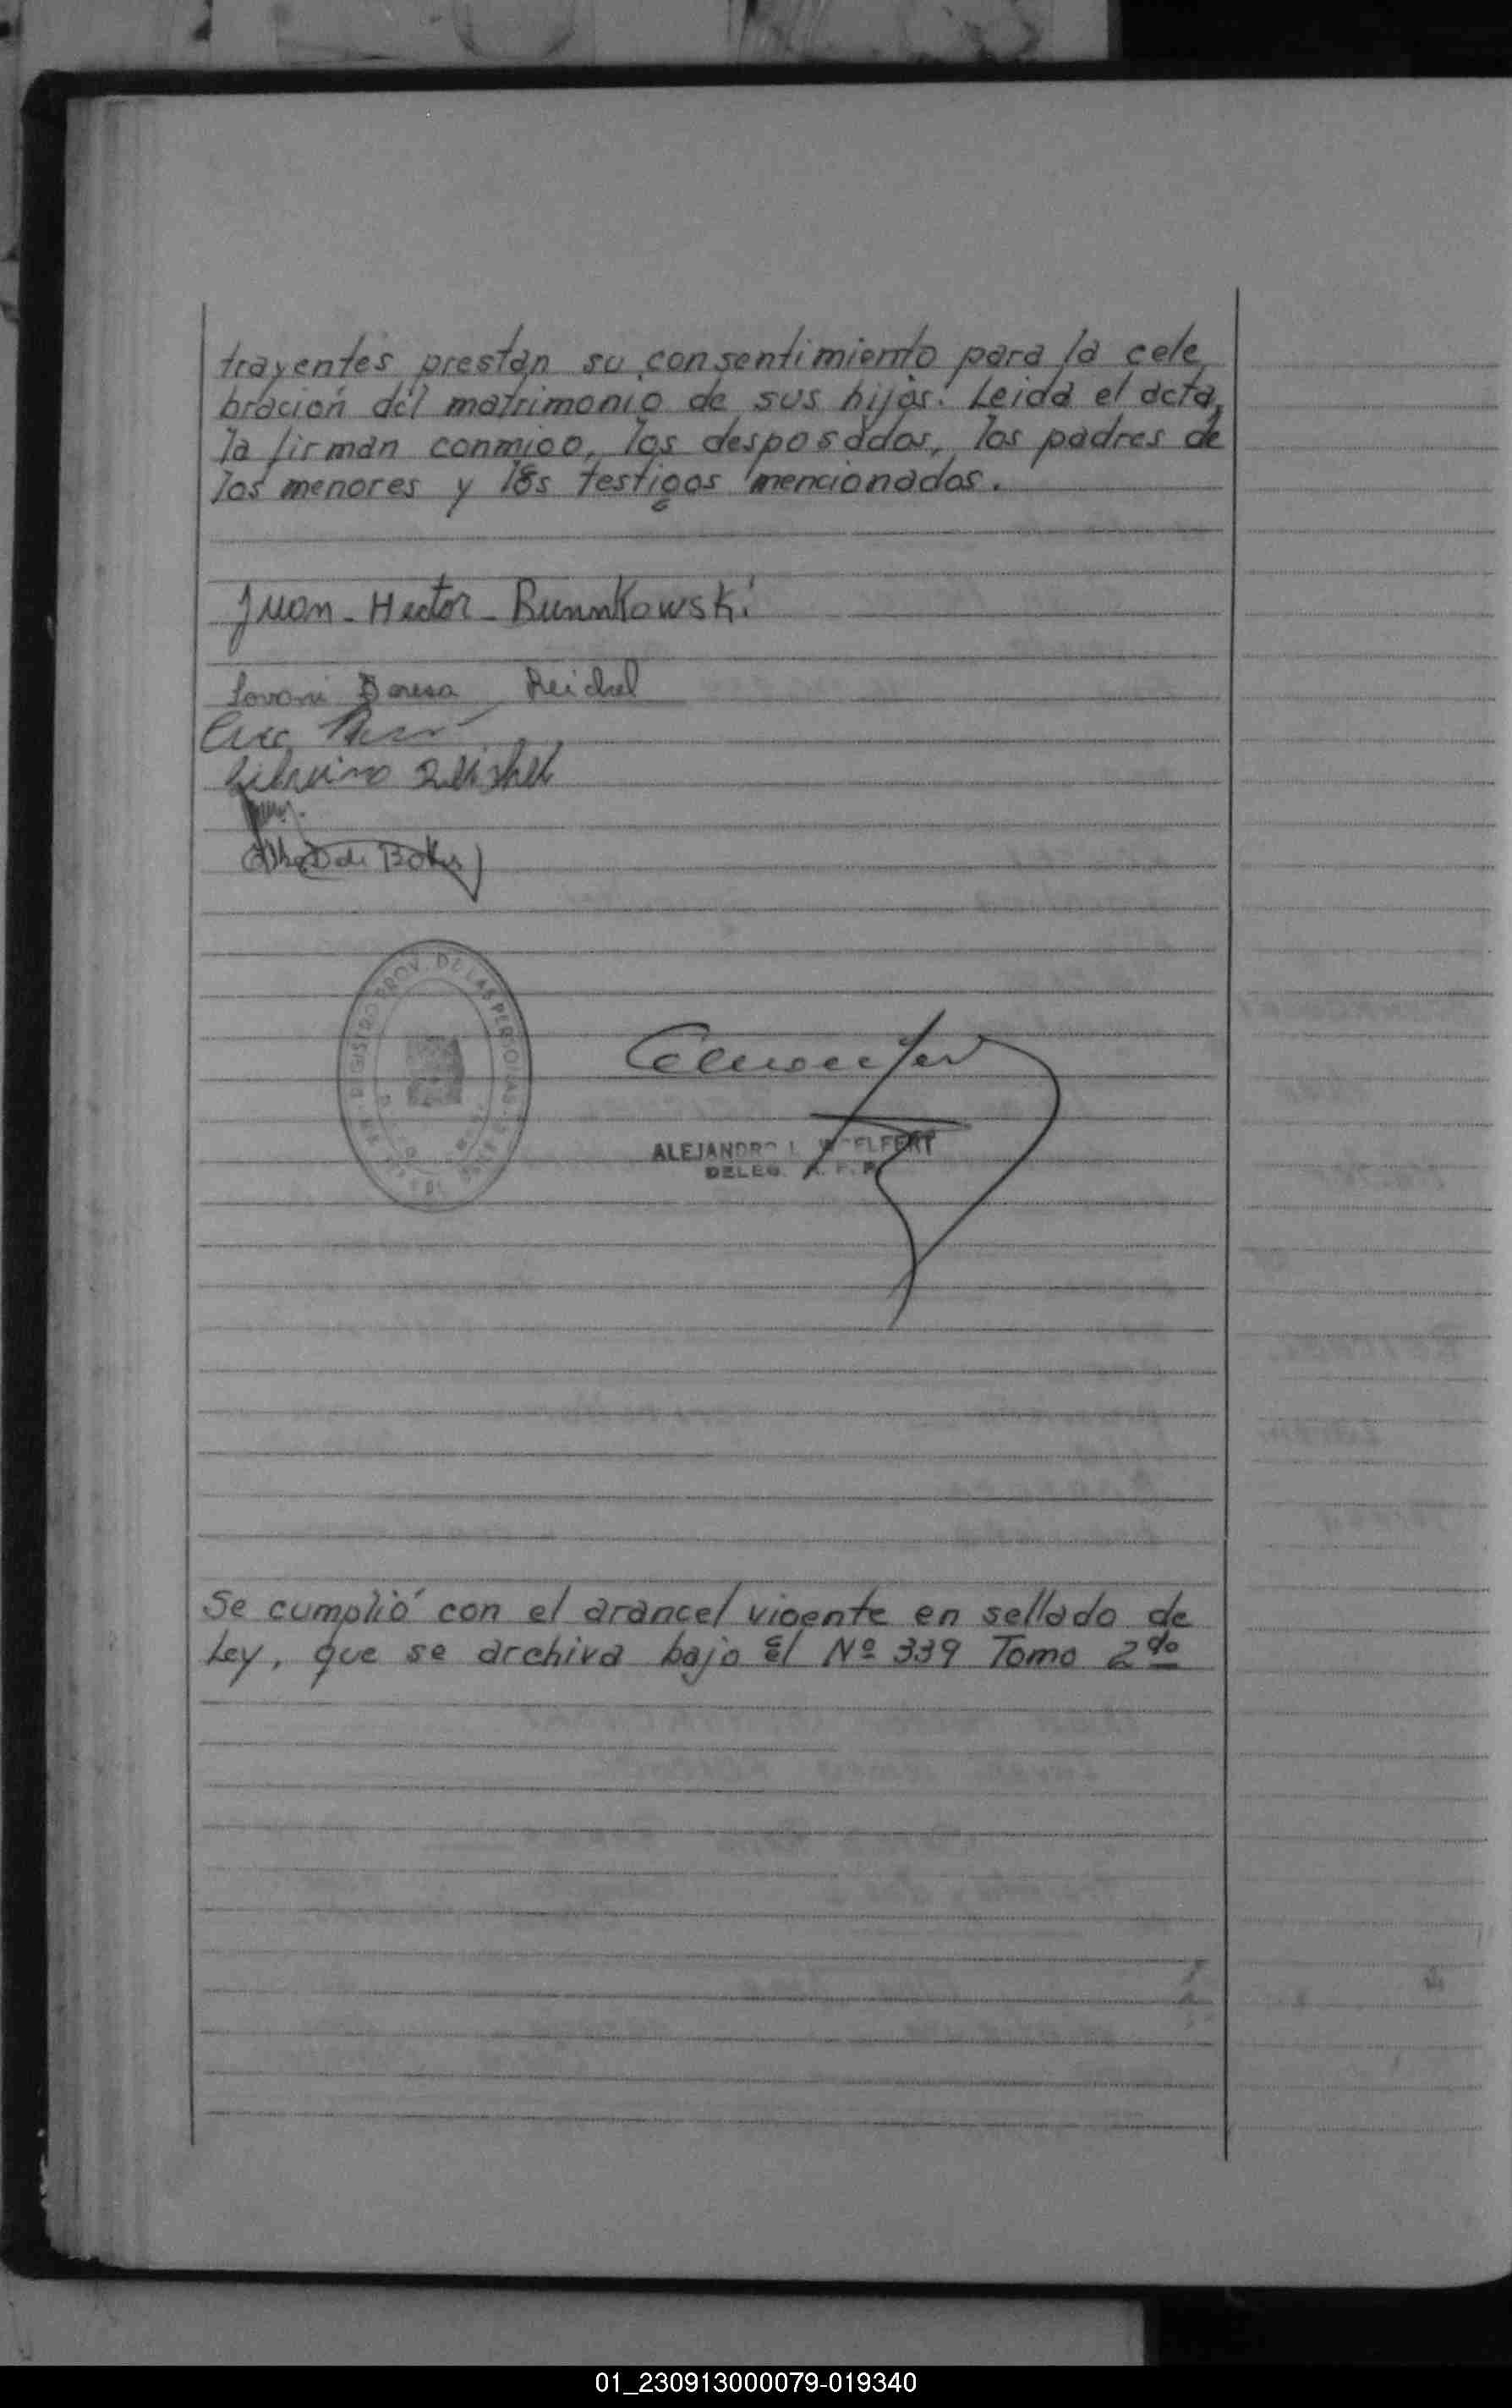 trayentes prestan su consentimiento para la cele
bración del matrimonio de sus hijos. Leida el acta,
la firman conmigo, los desposados, los padres de
los menores y los testigos mencionados.
Juan - Hector - Bunnkowski
Lovani Teresa Reichel
de Boker
REGISTRO PROV. DE LAS PERSONAS
ALEJANDRO L. WOELFERT
DELEG. R. P. P.
Se cumplió con el arancel vigente en sellado de
Ley, que se archiva bajo el Nº 339 Tomo 2do
01_230913000079-019340